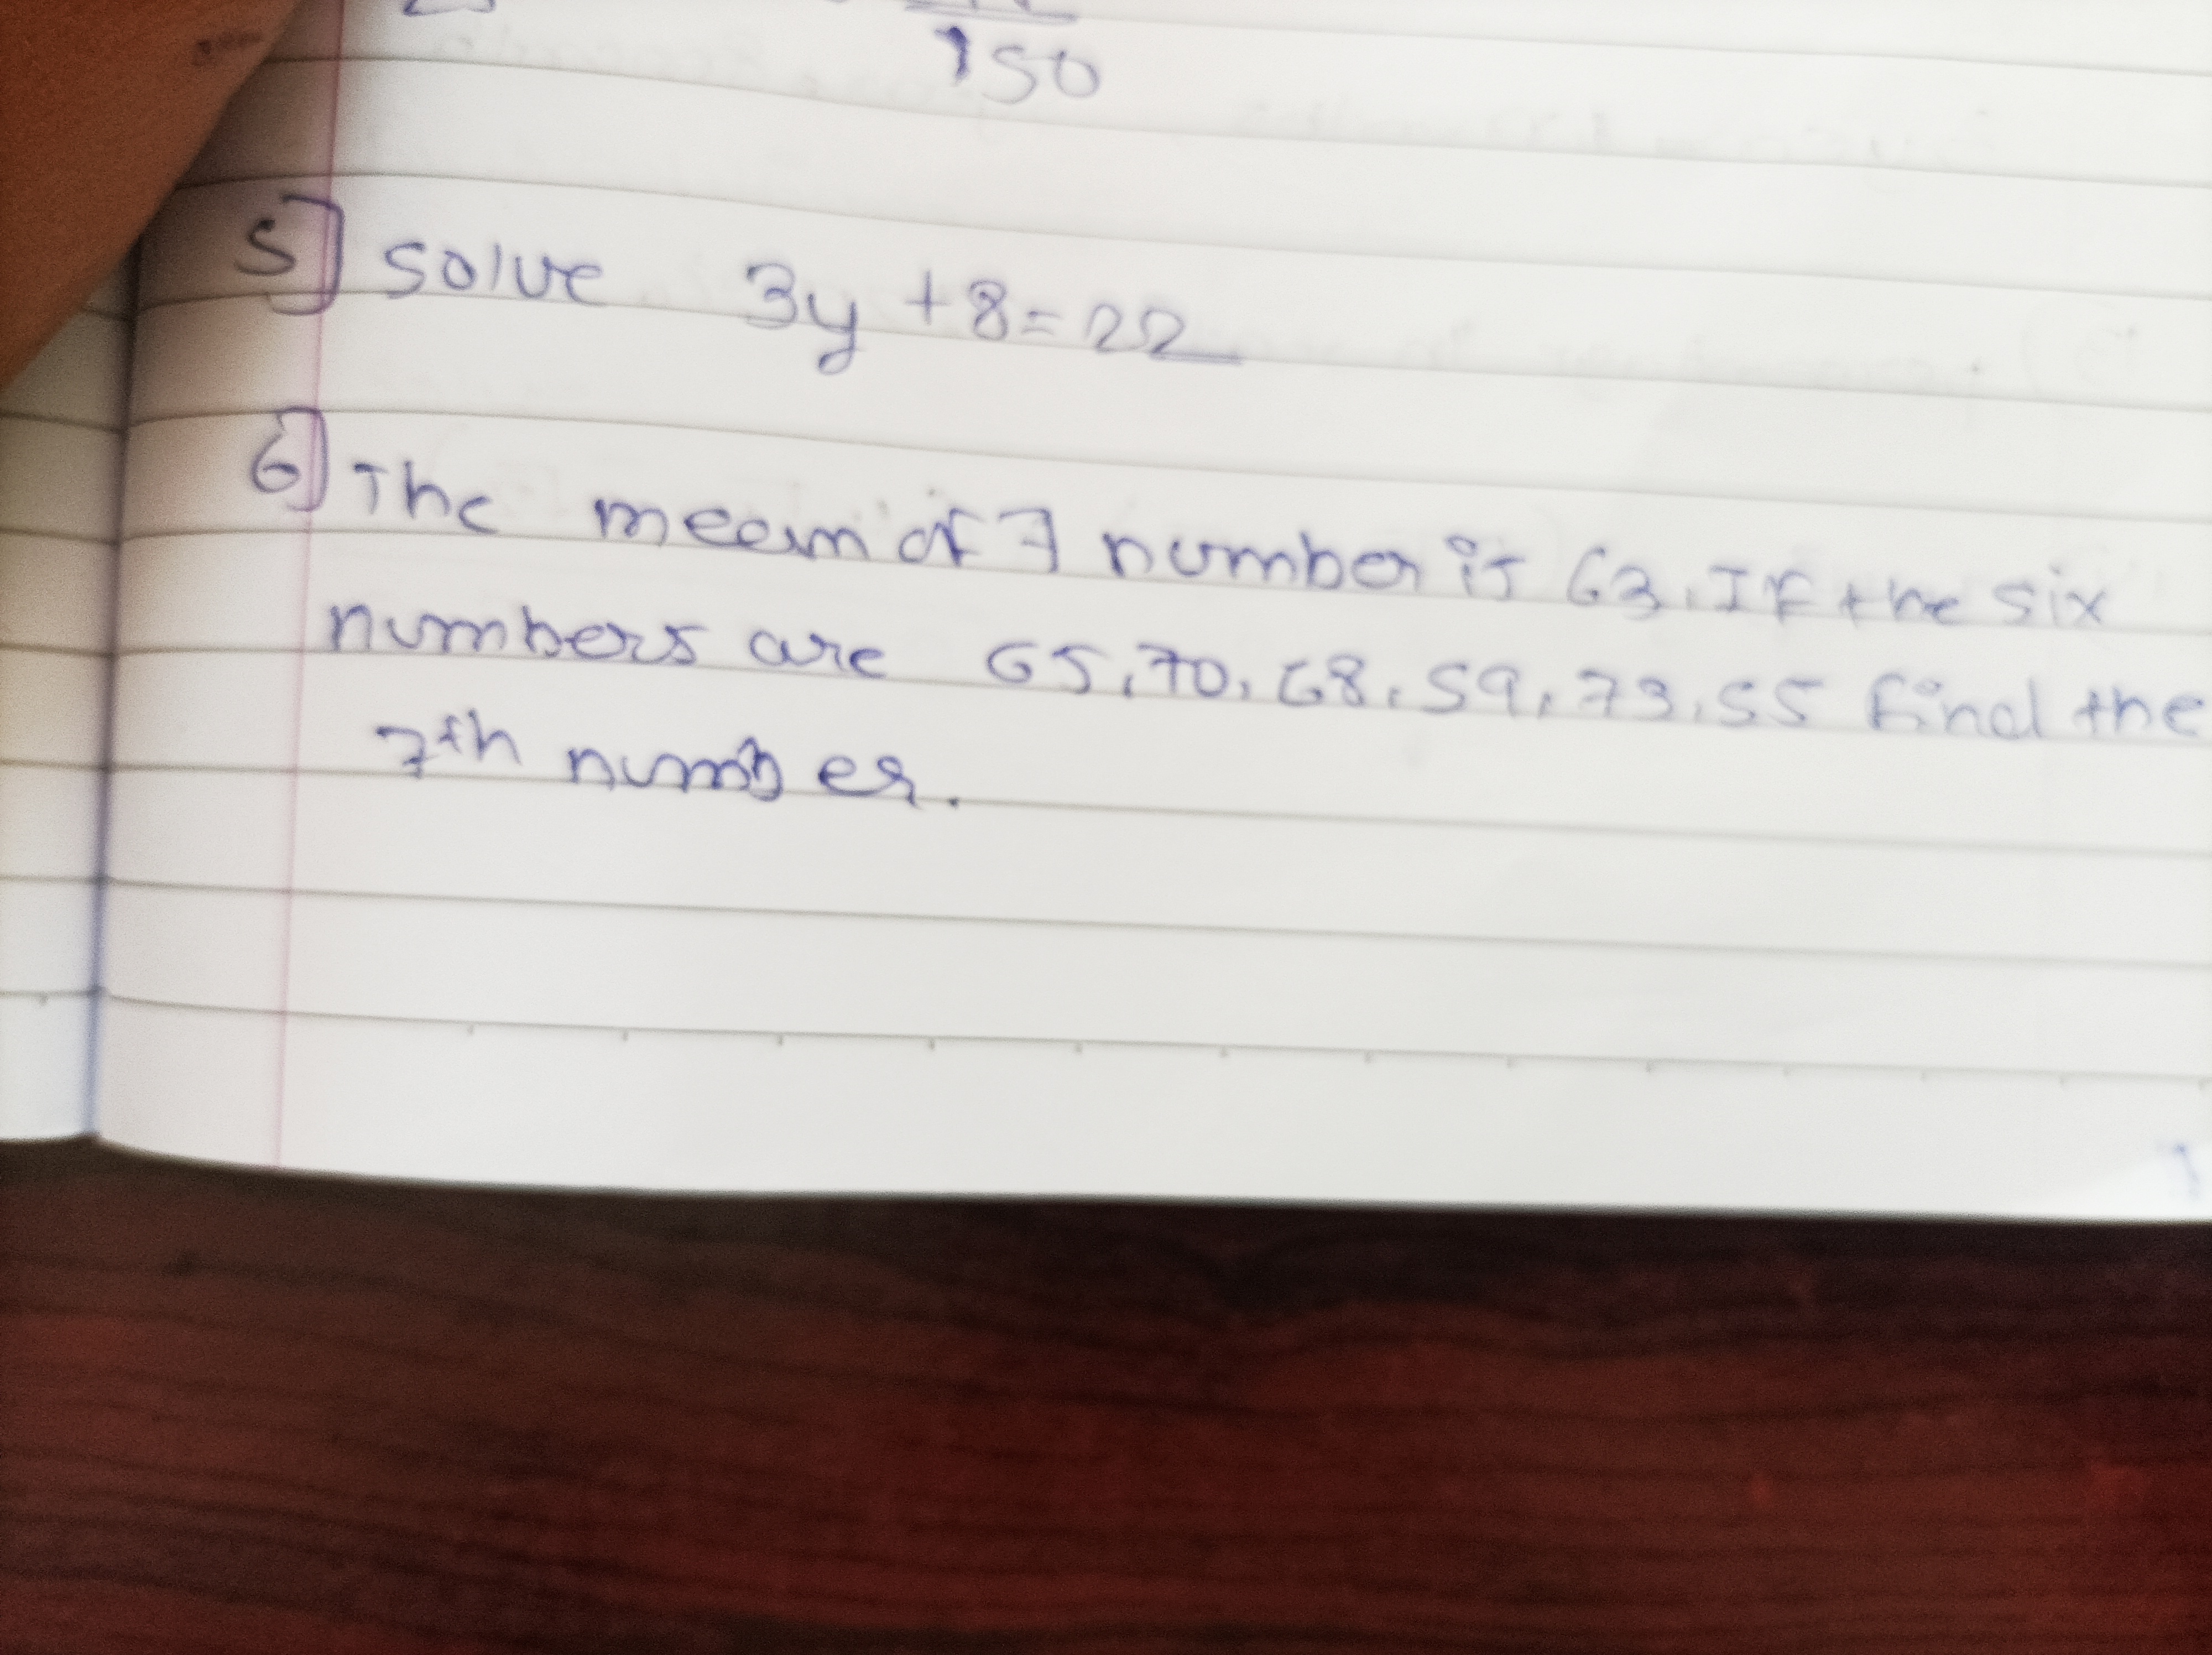 150
5] solve 3y +8=22
6] The meem of 7 number is 63. If the six
numbers are 65,70,68,59,73,55 find the
7th number.